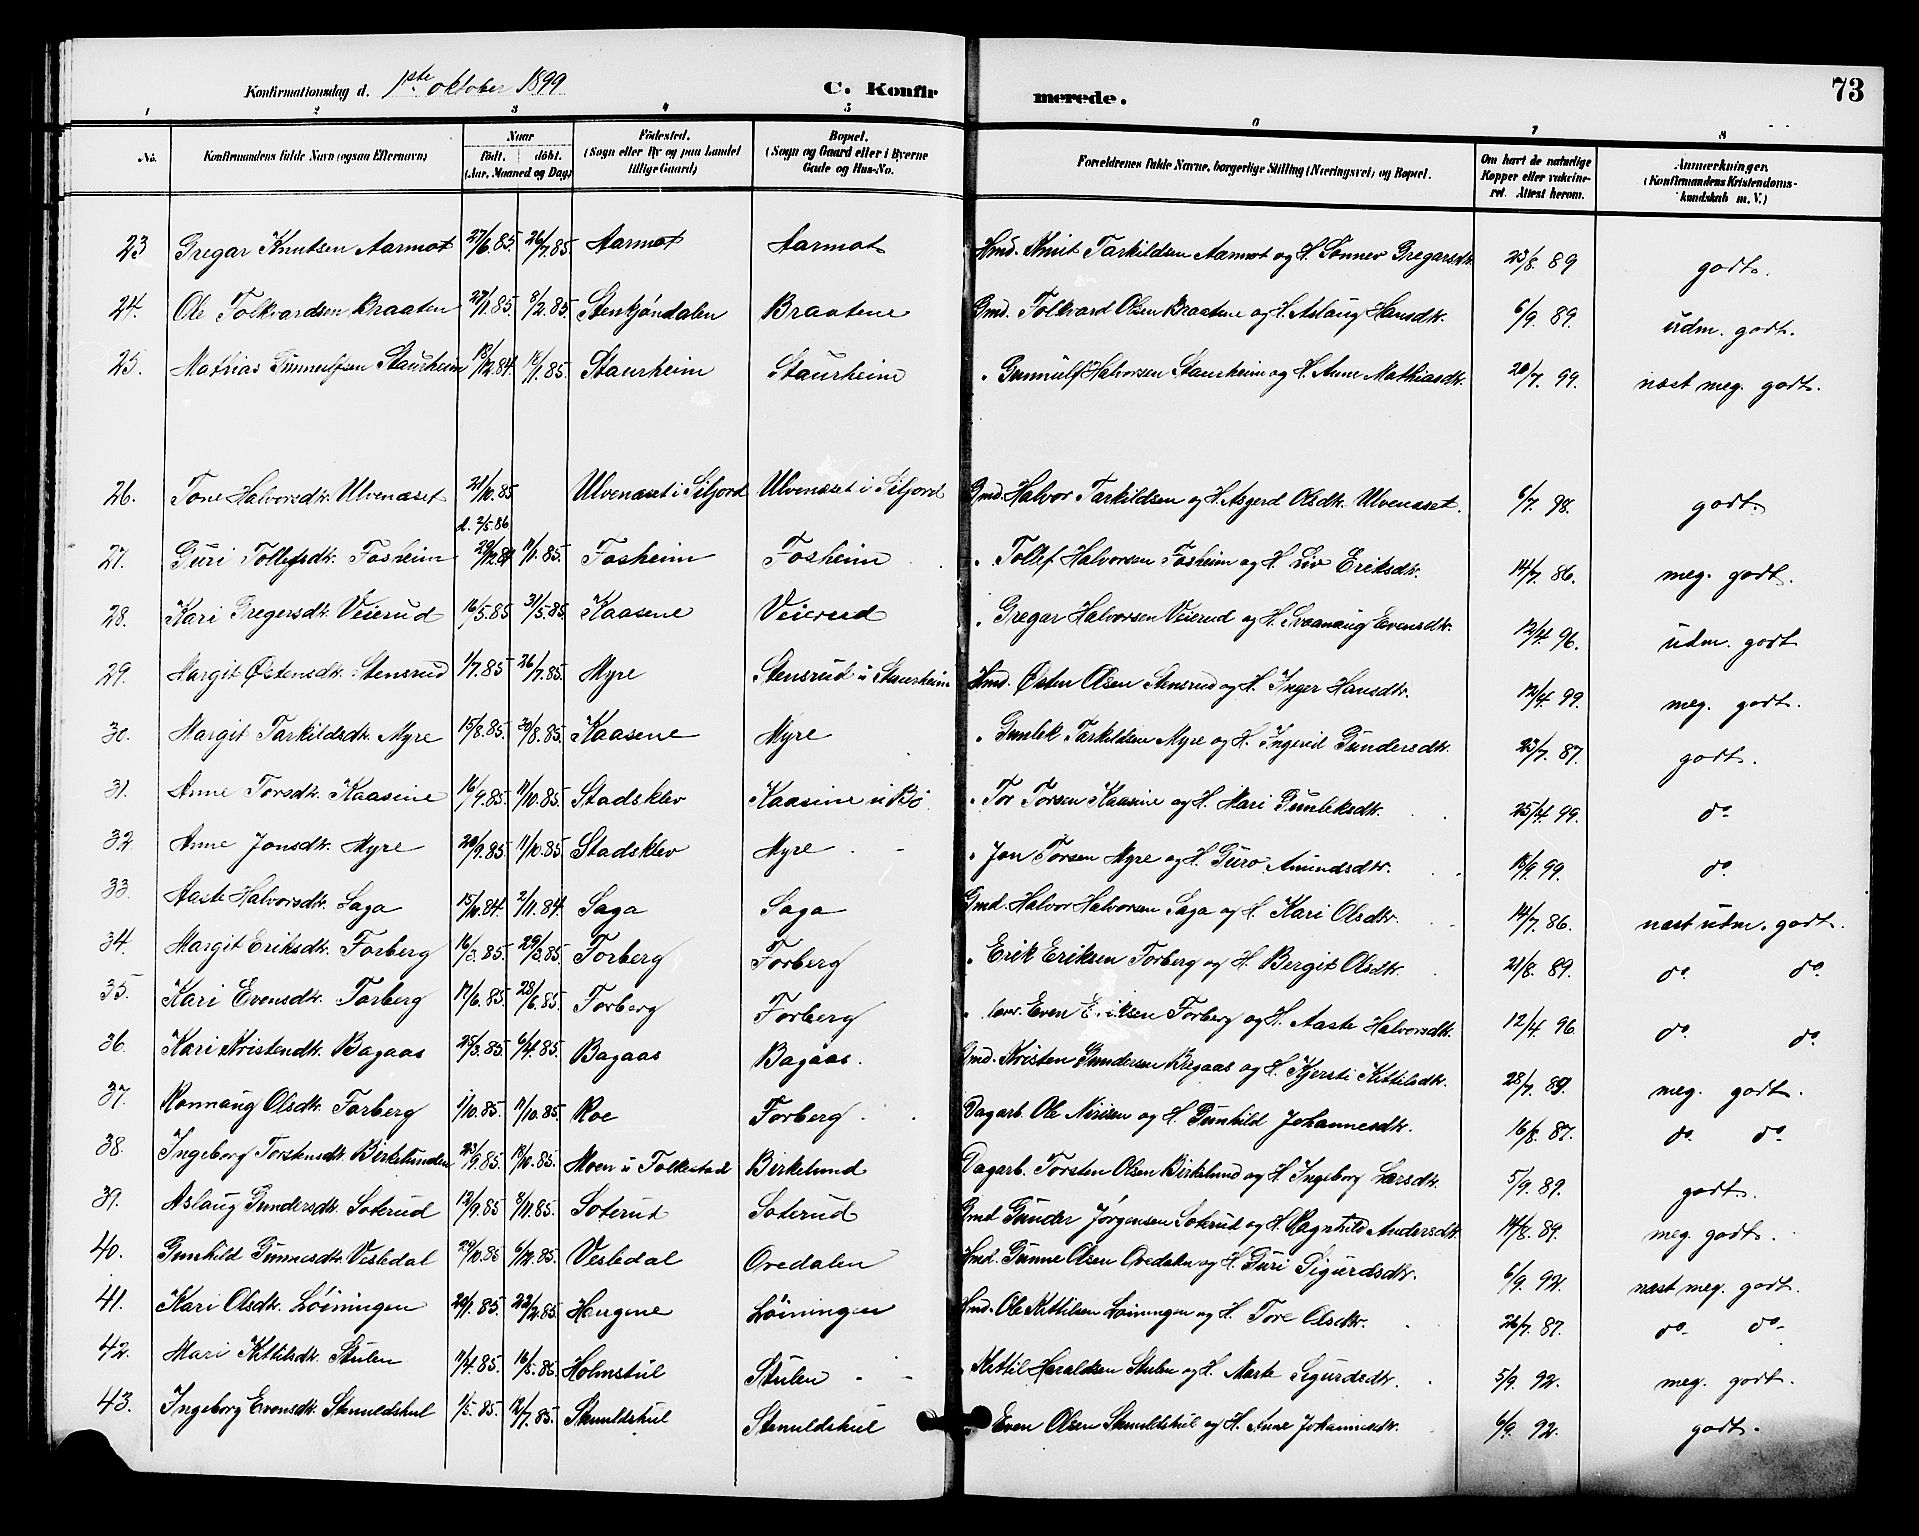 Konfirmationsdag d. 1ste oktober 1899 C. Konfirmerede. 73
1 2 3 4 5 6 7 8
No. Konfirmandens fulde Navn (ogsaa Efternavn) Naar født. døbt. (Aar, Maaned og Dag) Fødested. (Sogn eller By og paa Landet tillige Gaard) Bopæl. (Sogn og Gaard eller i Byerne Gade og Hus-No. Forældrenes fulde Navne, borgerlige Stilling (Næringsvei) og Bopæl. Om havt de naturlige Kopper eller vakcineret. Attest herom. Anmærkninger. (Konfirmandens Kristendomskundskab m. V.)
23 Gregar Knutsen Aarmot 27/6.85. 26/7.85. Aarmot Aarmot Hmd. Knut Tarkildsen Aarmot og H. Gregarsdtr. 23/8. 89 godt.
24. Ole Folkvardsen Braaten 27/1.85. 8/2.85. Stenkjøndalen Braatene Gmd. Folkvard Olsen Braatene og H. Aslaug Hansdtr. 6/9. 89. udm. godt.
25. Mathias Gunnulfsen Staurheim 18/12.84. 11/1.85. Staurheim Staurheim " Gunnulf Halvorsen Staurheim og H. Anne Mathiasdtr. 20/7. 99. næst meg. godt.
26. Tone Halvorsdtr. Ulvenæset 21/10.85 d. 2/5.86 Ulvenæset i Siljord Ulvenæset i Siljord Gmd. Halvor Tarkildsen og H. Asgerd Olsdtr. Ulvenæset. 6/7. 98. godt.
27. Guri Tollefsdtr. Fosheim 29/12.84 11/1.85. Fosheim Fosheim " Tollef Halvorsen Fosheim og H. Liv Eriksdtr. 14/7. 86. meg. godt.
28. Kari Gregersdtr. Veierud 16/5.85 31/5.85. Kaasene Veierud " Gregar Halvorsen Veierud og H. Svanaug Evensdtr. 12/4. 96. udm. godt
29. Margit Østensdtr. Stensrud 1/7.85 26/7.85. Myre Stensrud u Staurheim Hmd. Østen Olsen Stensrud og H. Inger Hansdtr. 12/4. 99. meg. godt.
30. Margit Tarkildsdtr. Myre 15/8.85. 30/8.85. Kaasene Myre " Gunlek Tarkildsen Myre og H. Ingerid Gundersdtr. 23/7. 87. godt.
31. Anne Torsdtr. Kaasine 16/9.85. 11/10.85. Stadsklev Kaasine u Bø. " Tor Torsen Kaasine og H. Mari Gunleksdtr. 25/4. 99. do
32 Anne Jonsdtr. Myre 20/9.85. 11/10.85. Stadsklev Myre " Jon Torsen Myre og H. Guro Amundsdtr. 15/9. 99. do
33. Aaste Halvorsdtr. Saga 15/10.84. 2/11.84. Saga Saga Gmd. Halvor Halvorsen Saga og H. Kari Olsdtr. 14/7. 86. næst udm. godt.
34. Margit Eriksdtr. Forberg 16/3.85. 29/3.85. Forberg Forberg " Erik Eriksen Forberg og H. Bergit Olsdtr. 21/8. 89. do do
35. Kari Evensdtr. Forberg 17/6.85. 28/6.85. Forberg Forberg " Even Eriksen Forberg og H. Aaste Halvorsdtr. 12/4 96. do do
36. Kari Kristendtr. Bagaas 25/3.85. 6/4.85. Bagaas Bagaas. Gmd. Kristen Gundersen Bagaas og H. Kjersti Kittilsdtr. 28/7. 89. meg. godt.
37. Rønnaug Olsdtr. Forberg 1/10.85. 11/10.85. Roe Forberg. Dagarb. Ole Nirisen og H. Gunhild Johannesdtr. 16/8. 87. do do
38. Ingeborg Torstensdtr. Birkelunden 23/9.85. 18/10.85. Moen u Folkestad Birkelund Dagarb. Torsten Olsen Birkelund og H. Ingeborg Larsdtr. 5/9. 89. godt.
39. Aslaug Gundersdtr. Soterud 12/9.85 8/11.85. Soterud Soterud Gmd Gunder Jørgensen Soterud og H. Ragnhild Andersdtr. 14/8. 89. meg. godt.
40. Gunhild Gunnesdtr. Vesledal 29/10.85 6/12.85. Vesledal Ovedalen Hmd. Gunne Olsen Ovedalen og H. Guri Sigurdsdtr. 6/9. 92. næst meg. godt.
41. Kari Olsdtr. Løiningen 20/1.85. 22/2.85. Haugene Løiningen Hmd. Ole Kittilsen Løiningen og H. Tore Olsdtr. 26/7. 87. do do
42. Mari Kittilsdtr. Stulen 11/4.85. 16/5.85. Holmstul Stulen " Kittil Haraldsen Stulen og H. Marte Sigurdsdtr. 5/9. 92. meg. godt.
43. Ingeborg Evensdtr. Skmuldshul 1/5.85. 12/7.85. Skmuldshul Skmuldshul " Even Olsen Skmuldshul og H. Anne Johannesdtr. 6/9. 92. godt.